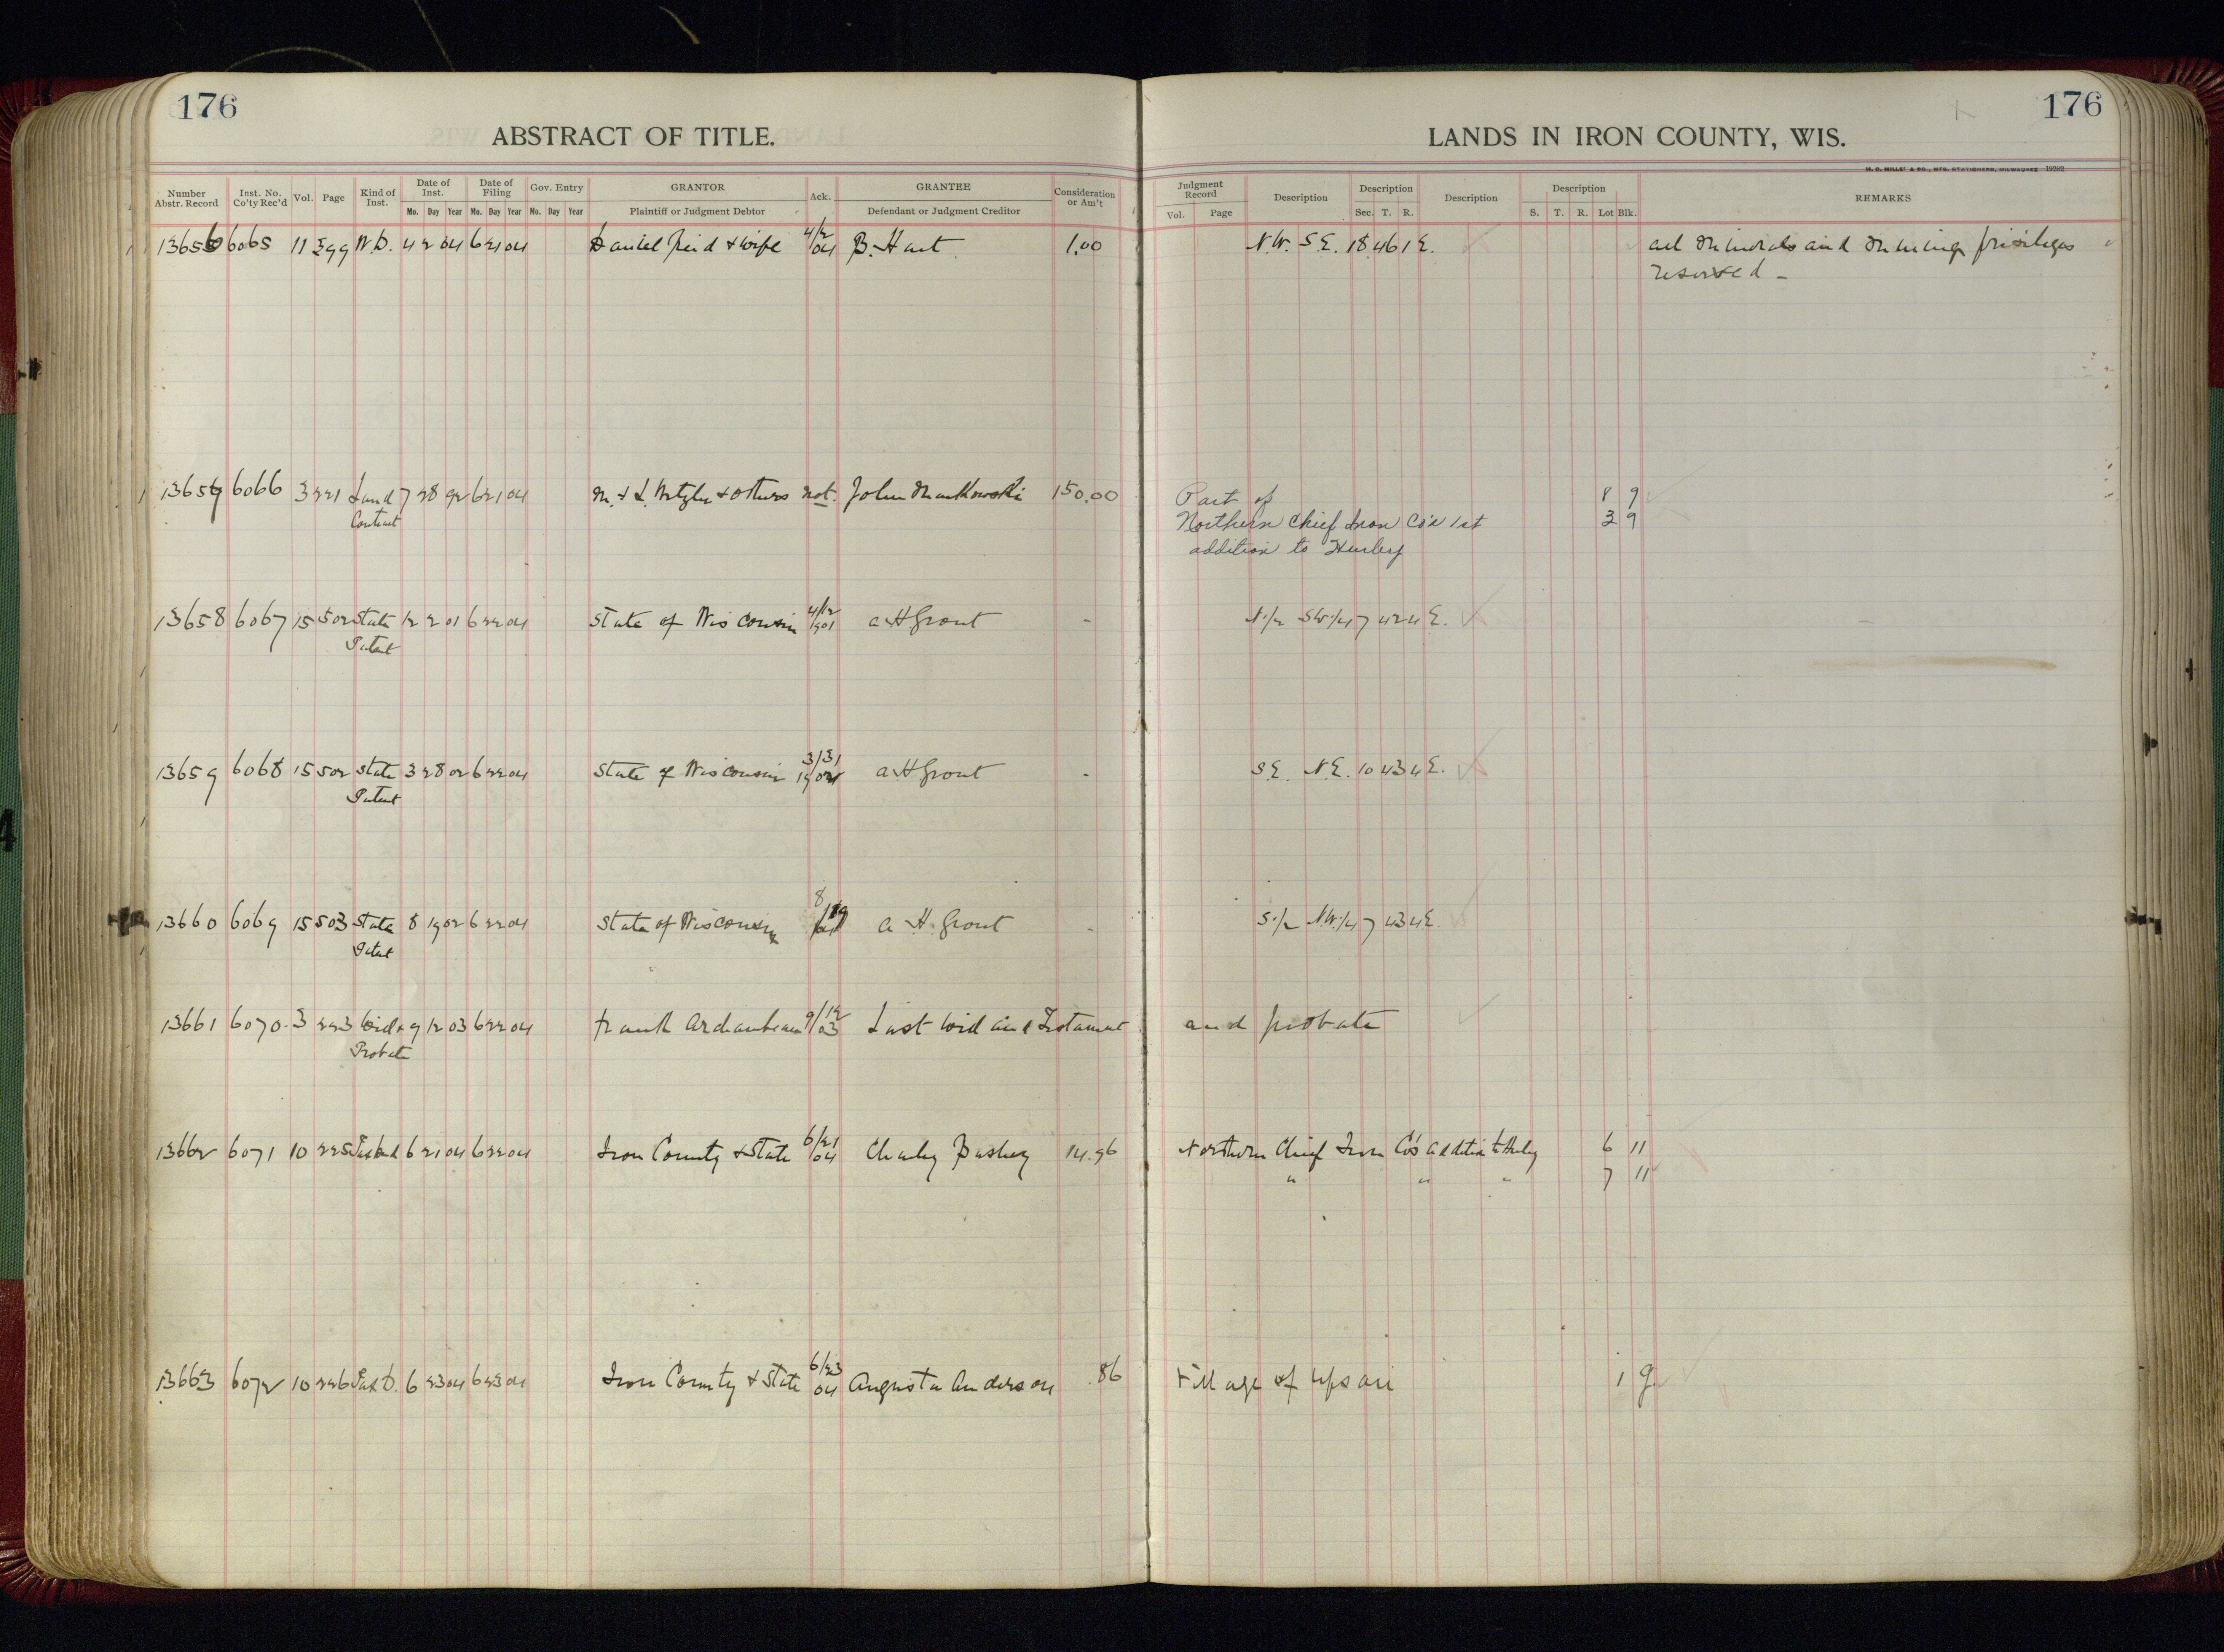 176
176
ABSTRACT OF TITLE.
LANDS IN IRON COUNTY, WIS.
H. C. MILLER & CO., MFG. STATIONERS, MILWAUKEE
Number Abstr. Record Inst. No. Co'ty Rec'd Vol. Page Kind of Inst. Date of Inst. Mo. Day Year Date of Filing Mo. Day Year Gov. Entry Mo. Day Year GRANTOR Plaintiff or Judgment Debtor Ack. GRANTEE Defendant or Judgment Creditor Consideration or Am't
Judgment Record Vol. Page Description Description Sec. T. R. Description Description S. T. R. Lot Blk. REMARKS
13656 6065 11 399 W.D. 4 2 04 6 21 04 Daniel Reid & wife 4/2 04 B. Hart 1.00 N.W. S.E. 18 46 1 E. all minerals and mining privileges
reserved
13657 6066 3 221 Land 7 28 92 6 21 04 M. & L. Wetzler & others not. John Mankowski 150.00 Part of 8 9
Contract Northern Chief Iron Co's 1st 3 9
addition to Hurley
13658 6067 15 502 State 12 2 01 6 22 04 State of Wisconsin 4/12 1901 A H Grout - N 1/2 SW 1/4 7 42 4 E.
Patent
13659 6068 15 502 State 3 28 02 6 22 04 State of Wisconsin 3/31 A H Grout - S.E. N.E. 10 43 4 E.
Patent
13660 6069 15 503 State 8 19 02 6 22 04 State of Wisconsin 8/19 A. H. Grout - S 1/2 N.W. 1/4 7 43 4 E.
Patent
13661 6070 3 223 Will & 9 12 03 6 22 04 Frank Archambeau 9/12 03 Last Will and Testament and probate
Probate
13662 6071 10 225 Tax Deed 6 21 04 6 22 04 Iron County & State 6/21 04 Charley Pashey 14.96 Northern Chief Iron Co's addition to Hurley 6 11
" " " 7 11
13663 6072 10 226 Tax D. 6 23 04 6 23 04 Iron County & State 6/23 04 Augusta Anderson .86 Village of Upson 1 9